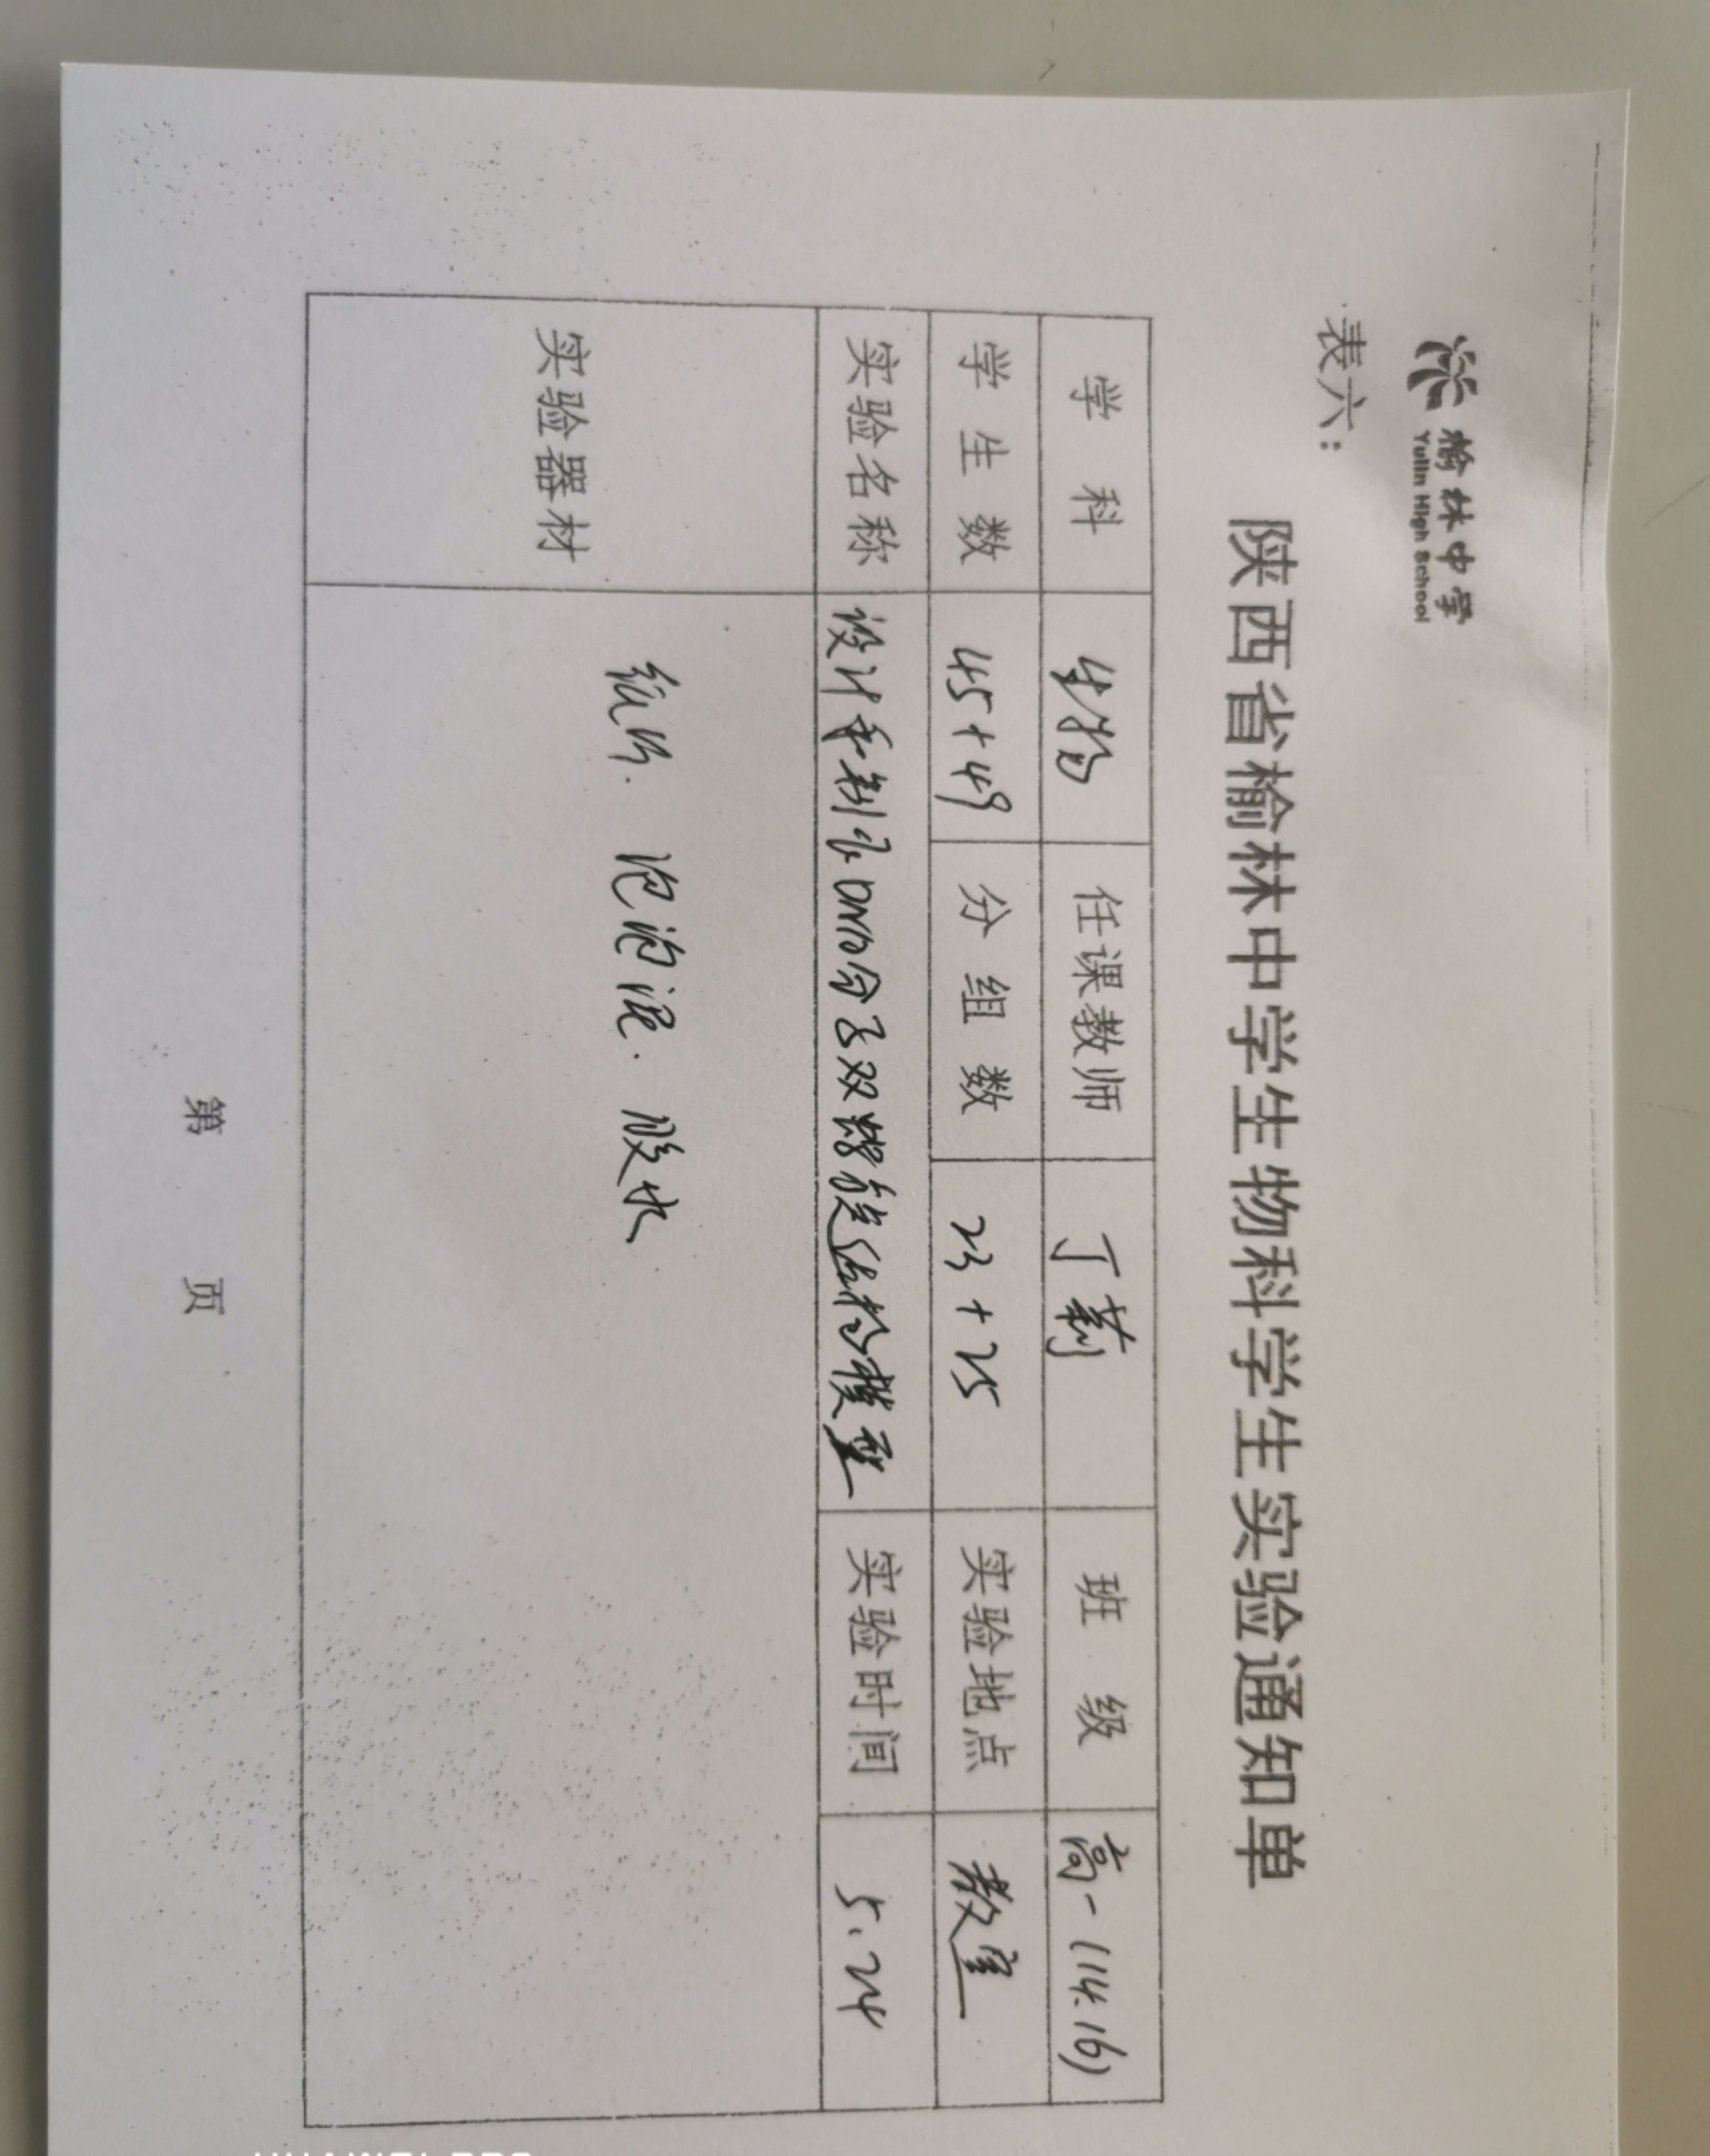 榆林中学
Yulin High School
表六：
陕西省榆林中学生物科学生实验通知单
学 科 生物 任课教师 丁莉 班 级 高一(14.16)
学 生 数 45+49 分 组 数 23+25 实验地点 教室
实验名称 设计和制作DNA分子双螺旋结构模型 实验时间 5.24
实验器材 纸片. 泡泡泥. 胶水
第 页